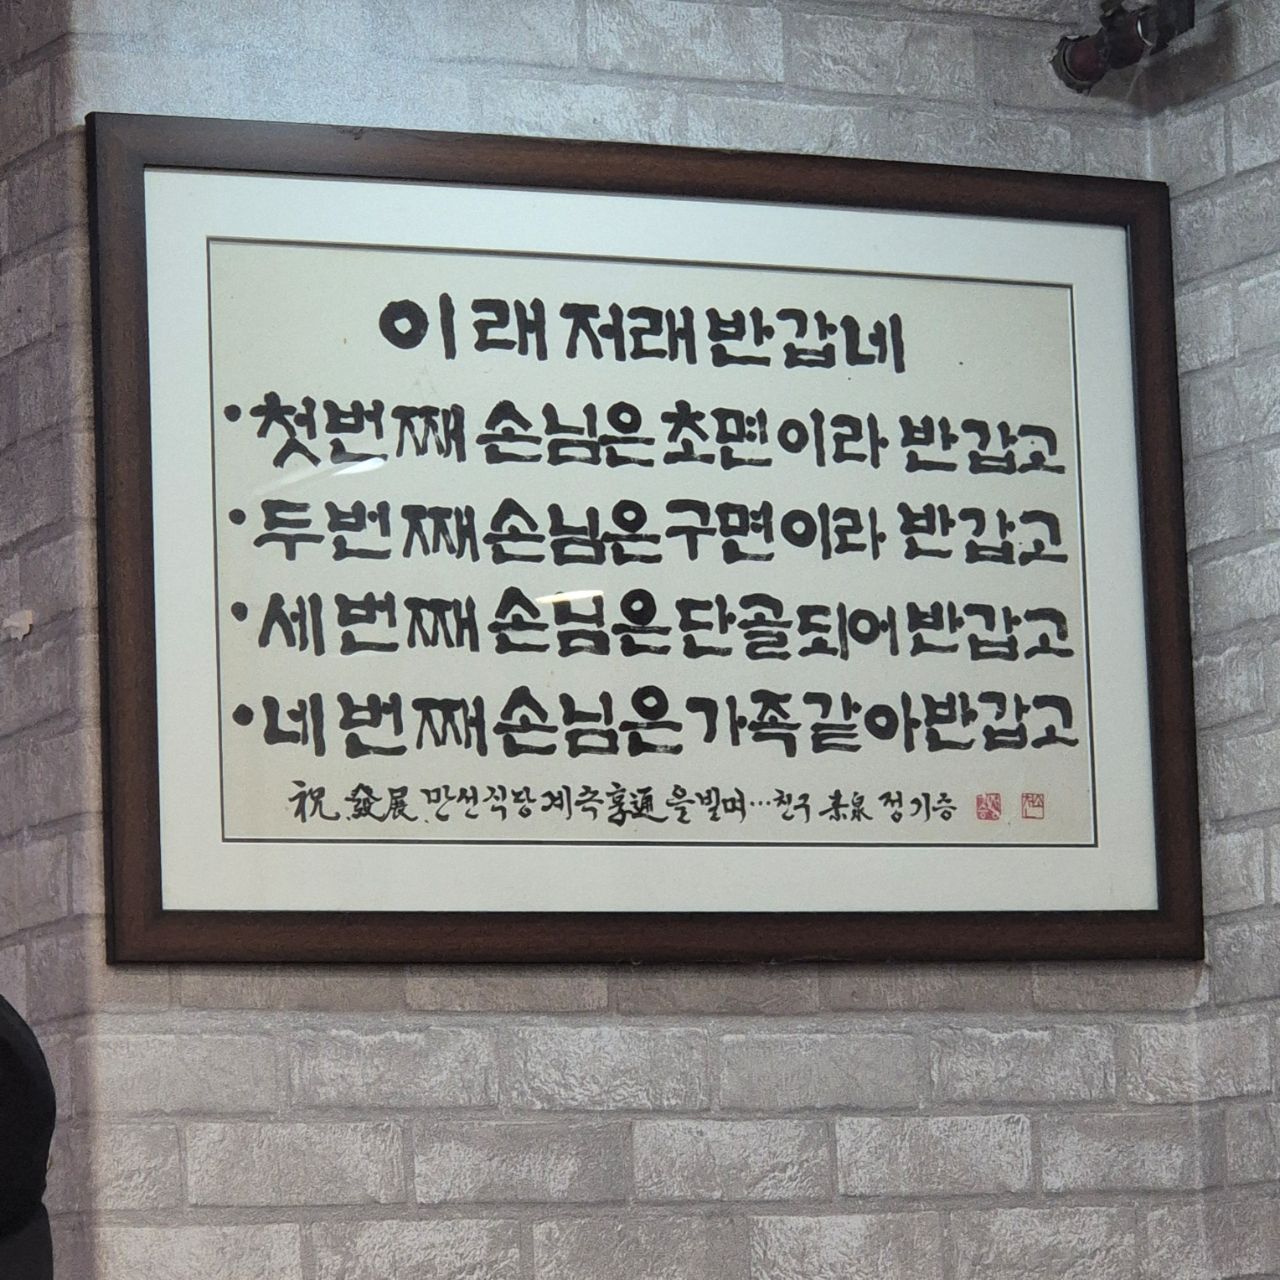 이래저래 반갑네
• 첫번째 손님은 초면이라 반갑고
• 두번째 손님은 구면이라 반갑고
• 세번째 손님은 단골되어 반갑고
• 네번째 손님은 가족같아 반갑고
祝 發展 만선식당 계속 亨通을 빌며… 친구 素泉 정기증